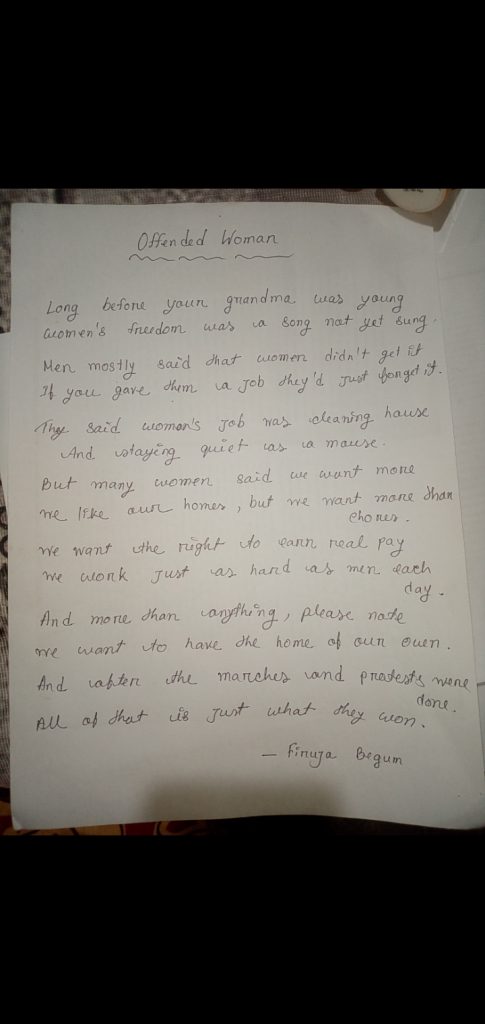 Offended Woman
Long before your grandma was young
women's freedom was a song not yet sung.
Men mostly said that women didn't get it
If you gave them a job they'd just forget it.
They said women's job was cleaning house
And staying quiet as a mouse.
But many women said we want more
we like our homes, but we want more than
chores.
we want the right to earn real pay
we work just as hard as men each
day.
And more than anything, please note
we want to have the home of our own.
And after the marches and protests were
done.
All of that is just what they won.
— Firuja Begum